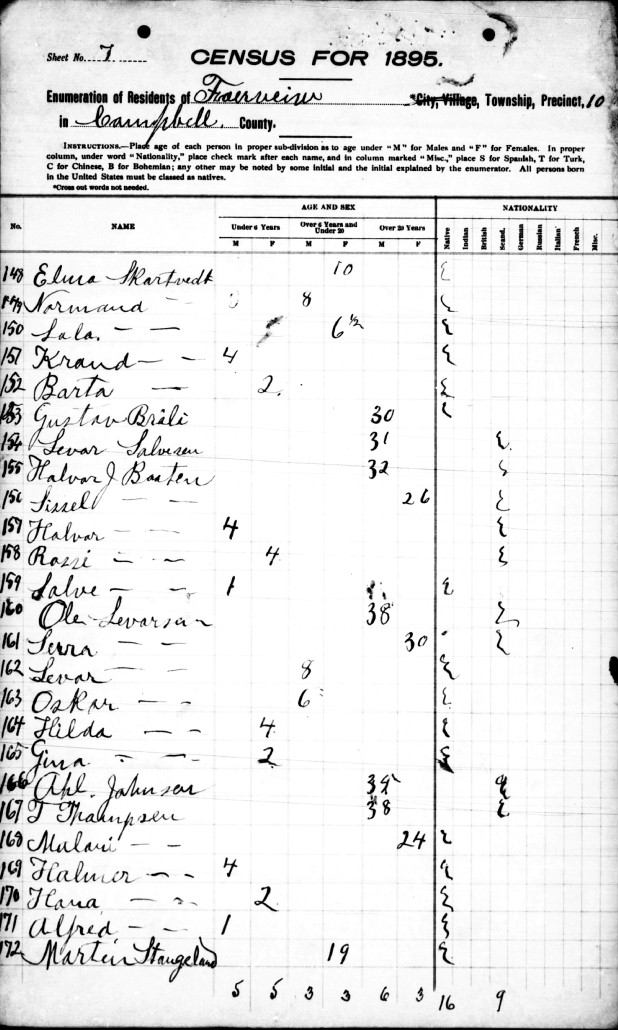 Sheet No. 7
CENSUS FOR 1895.
Enumeration of Residents of *City, Village, Township, Precinct, 10
in Campbell. County.
INSTRUCTIONS.—Place age of each person in proper sub-division as to age under "M" for Males and "F" for Females. In proper
column, under word "Nationality," place check mark after each name, and in column marked "Misc.," place S for Spanish, T for Turk,
C for Chinese, B for Bohemian; any other may be noted by some initial and the initial explained by the enumerator. All persons born
in the United States must be classed as natives.
*Cross out words not needed.
AGE AND SEX NATIONALITY
No. NAME Under 6 Years Over 6 Years and Under 20 Over 20 Years Native Indian British Scand. German Russian Italian French Misc.
M F M F M F
148 Elma Skartvedt 10
149 Normand — 8
150 Lala. — — 6 1/2
151 Kraud — — 4
152 Barta — 2
153 Gustav Brali 30
154 Sevar Salvesen 31
155 Halvor J Baaten 32
156 Sissel — — 26
157 Halvar — — 4
158 Rossi — — 4
159 Salve — — 1
160 Ole Sevarsen 38
161 Serra — — 30
162 Sevar — — 8
163 Oskar — — 6
164 Hilda — — 4
165 Gina — — 2
166 Johnson
167 T Thompsen 38
168 — — 24
169 Halmer — — 4
170 Hana — — 2
171 Alfred — — 1
172 Martin Stangeland 19
5 5 3 3 6 3 16 9